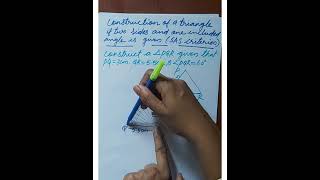 Construction of a triangle
if two sides and one included
angle is given (SAS criterion)
Construct a △PQR given that
PQ = 3cm, QR = 5.5cm & ∠PQR = 60°
P
R